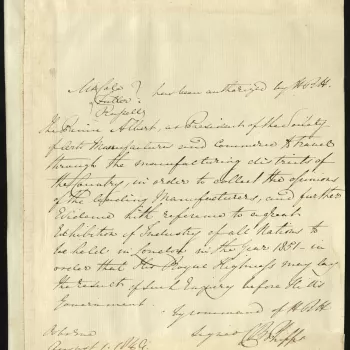 have been authorized by H.R.H.
Fuller
Russell
The Prince Albert, as President of the Society
of Arts Manufactures and Commerce to travel
through the manufacturing districts of
the Country, in order to collect the opinions
of the leading Manufacturers, and further
Evidence with reference to a great
Exhibition of Industry of all Nations to
be held in London in the year 1851 in
order that His Royal Highness may lay
the results of such Enquiry before H.M's
Government.
By command of H.R.H.
Osborne
Signed
August 1. 1849.